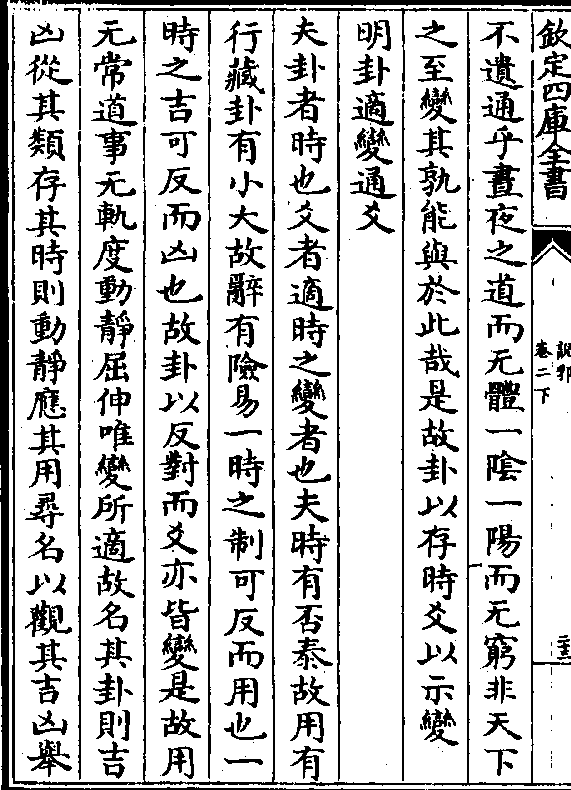 欽定四庫全書
說郛
卷二下
不遺通乎晝夜之道而无體一陰一陽而无窮非天下
之至變其孰能與於此哉是故卦以存時爻以示變
明卦適變通爻
夫卦者時也爻者適時之變者也夫時有否泰故用有
行藏卦有小大故辭有險易一時之制可反而用也一
時之吉可反而凶也故卦以反對而爻亦皆變是故用
无常道事无軌度動靜屈伸唯變所適故名其卦則吉
凶從其類存其時則動靜應其用尋名以觀其吉凶舉